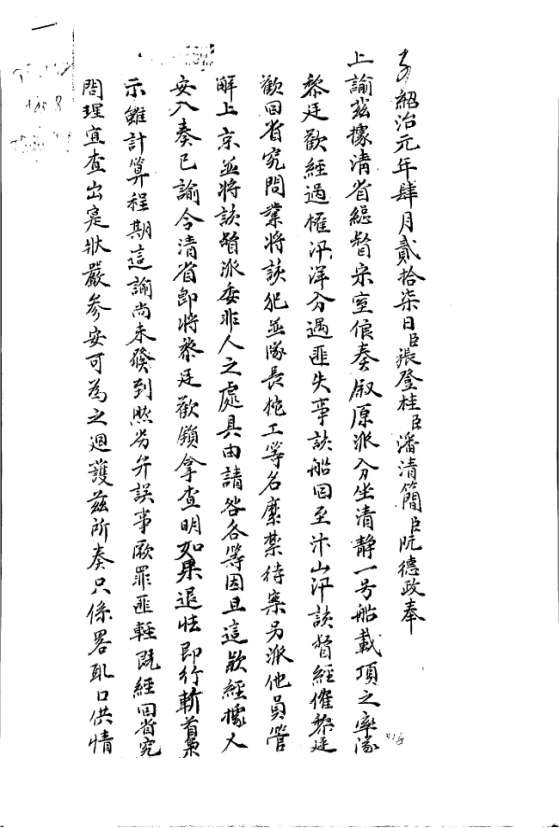 子紹治元年肆月貳拾柒日臣張登桂臣潘清簡臣阮德政奉
上諭茲據清省總督宗室偯奏叙原派分坐清静一号船載項之率隊
黎廷歡經過榷汛洋分遇匪失事該船回至汴山汛該督經催黎廷
歡回省究問業將該犯並隊長柁工等名糜禁待案另派他員管
解上京並將該督派委非人之處具由請咎各等因且這欵經據乂
安入奏已諭令清省即將黎廷歡鎖拿查明如果退怯即行斬首梟
示雖計算程期這諭尚未發到照劣弁誤事厥罪匪輕既經回省究
問理宜查出寔狀嚴參安可為之迴護茲所奏只係畧取口供情